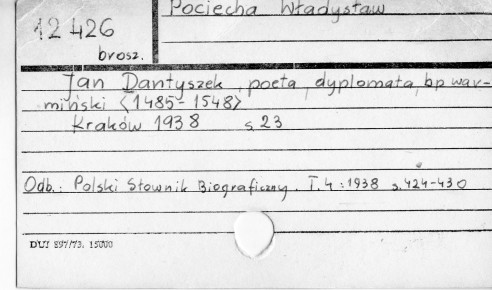 Pociecha Władysław
12 426
brosz.
Jan Dantyszek, poeta, dyplomata, bp war-
miński <1485-1548>
Kraków 1938 s. 23
Odb.: Polski Słownik Biograficzny. T. 4 : 1938 s. 424-430
DUJ 897/73. 15000